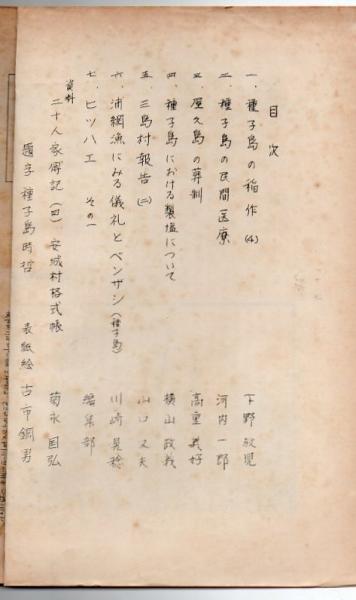 目次
一、種子島の稲作(4) 下野敏見
二、種子島の民間医療 河内一郎
三、屋久島の葬制 高重義好
四、種子島における製塩について 横山政義
五、三島村報告(二) 山口又夫
六、浦網漁にみる儀礼とベンザシ(種子島) 川崎晃稔
七、ヒツハエ その一 編集部
資料
二十人家傳記(四) 安城村格式帳 菊永国弘
題字 種子島時哲 表紙絵 古市鋼男